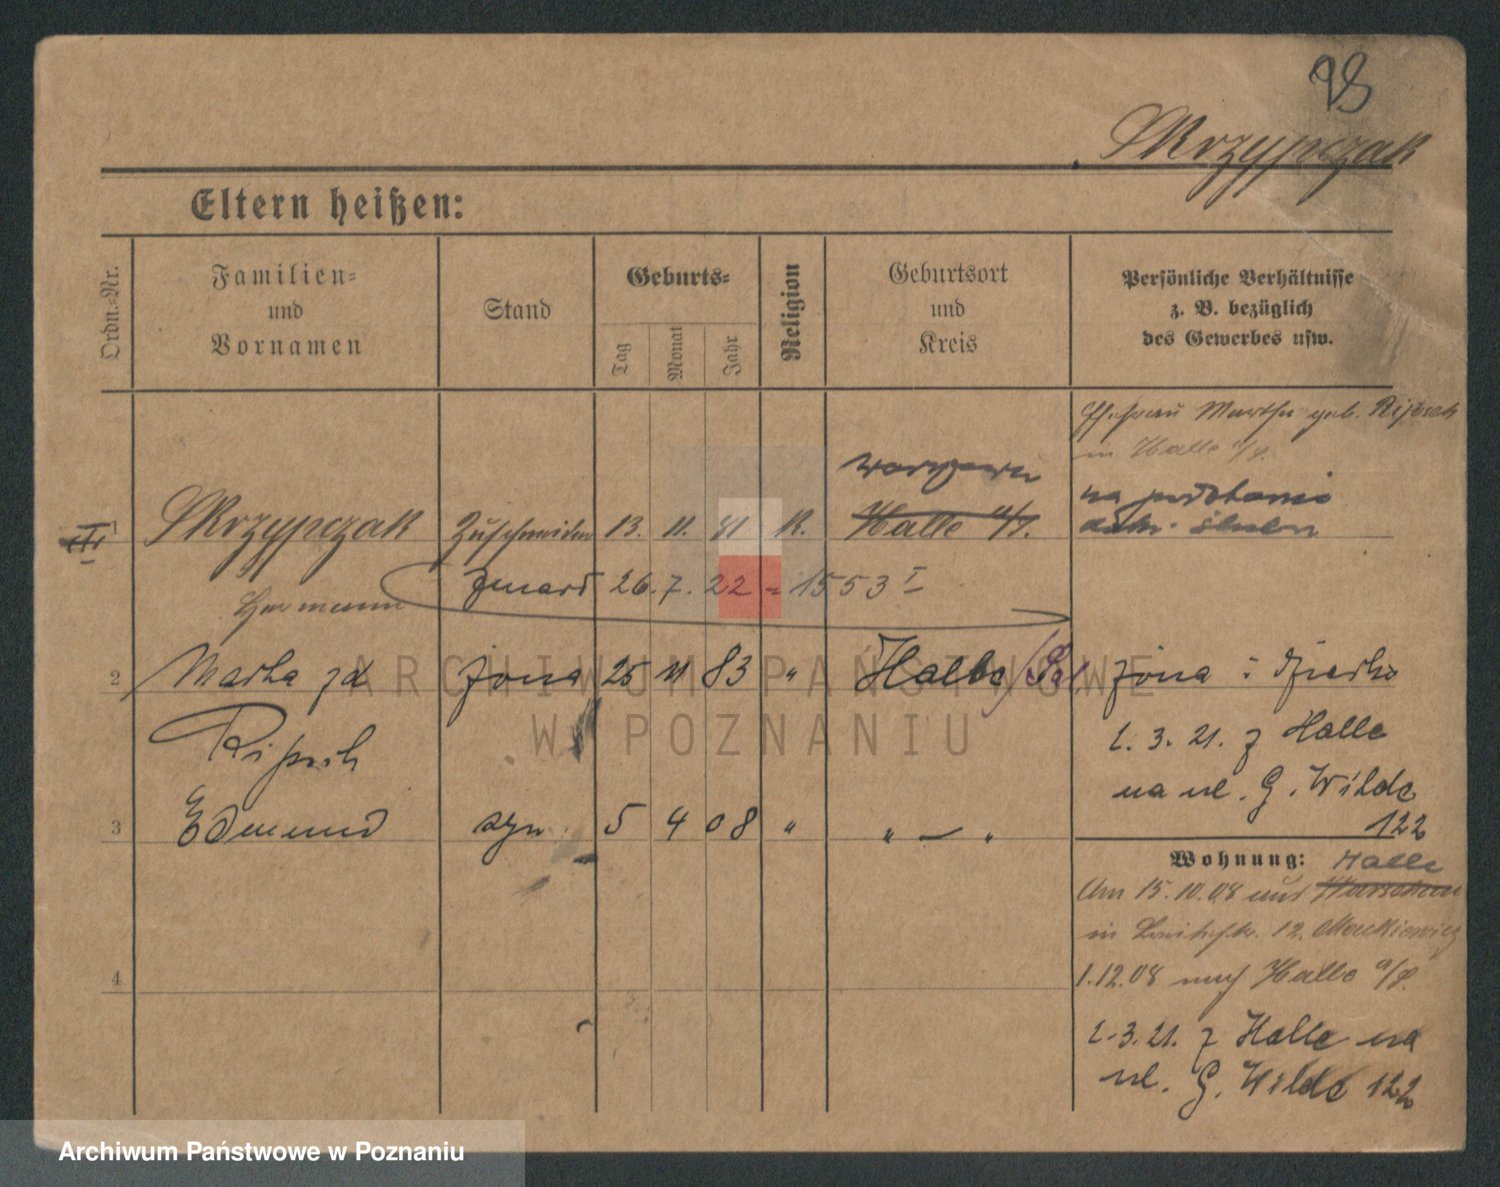 98
Skrzypczak
Eltern heißen:
Ordn.-Nr.
Familien-
und
Vornamen
Stand
Geburts-
Tag
Monat
Jahr
Religion
Geburtsort
und
Kreis
Persönliche Verhältnisse
z. B. bezüglich
des Gewerbes usw.
Ehefrau Martha geb.
in Halle a/S.
1
Skrzypczak
Zuschneider
13. 11. 81
K.
Halle a/S.
Hermann
Zmarł 26. 7. 22 = 1553 I
2
Marta zd
żona
25 11 83
"
Halle
żona i dziecko
1. 3. 21. z Halle
na ul. G. Wilde
122
3
Edmund
syn
5 4 08
"
" — "
Wohnung:
Halle
Am 15.10.08 aus Warschau
in 12. Mackiewicz
1.12.08 nach Halle a/S.
4
1.3.21. z Halle na
ul. G. Wilde 122
ARCHIWUM PAŃSTWOWE
W POZNANIU
Archiwum Państwowe w Poznaniu